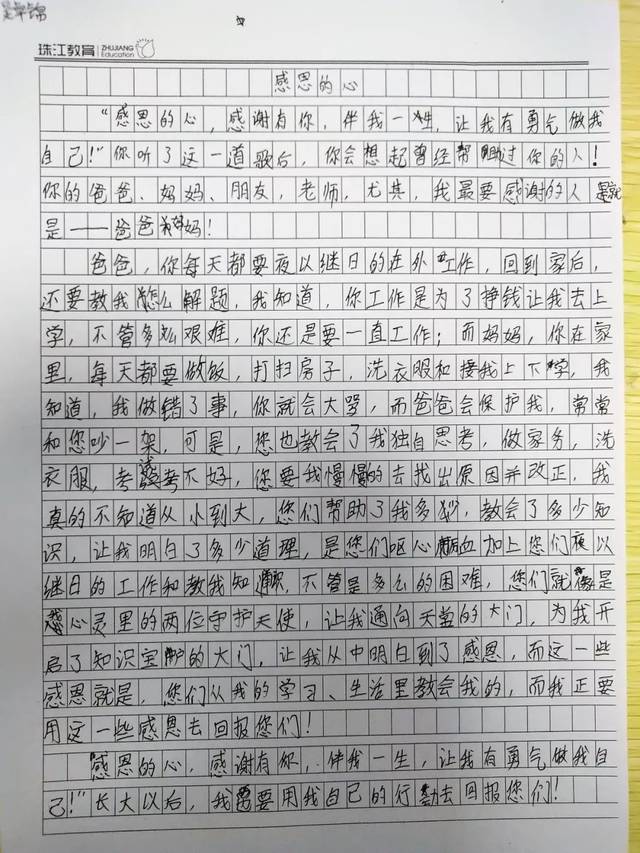 珠江教育 ZHUJIANG Education
感恩的心
“感恩的心，感谢有你，伴我一生，让我有勇气做我
自己！”你听了这一道歌后，你会想起曾经帮助过你的人！
你的爸爸、妈妈、朋友，老师，尤其，我最要感谢的人就
是——爸爸和妈妈！
爸爸，你每天都要夜以继日的在外工作，回到家后，
还要教我怎么解题，我知道，你工作是为了挣钱让我去上
学，不管多么艰难，你还是要一直工作；而妈妈，你在家
里，每天都要做饭，打扫房子，洗衣服和接我上下学，我
知道，我做错了事，你就会大骂，而爸爸会保护我，常常
和您吵一架，可是，您也教会了我独自思考，做家务，洗
衣服，考试考不好，您要我慢慢的去找出原因并改正，我
真的不知道从小到大，您们帮助了我多少，教会了多少知
识，让我明白了多少道理，是您们呕心沥血加上您们夜以
继日的工作和教我知识，不管是多么的困难，您们就像是
心灵里的两位守护天使，让我通向天堂的大门，为我开
启了知识宝库的大门，让我从中明白到了感恩，而这一些
感恩就是，您们从我的学习、生活里教会我的，而我正要
用这一些感恩去回报您们！
感恩的心，感谢有你，伴我一生，让我有勇气做我自
己！”长大以后，我需要用我自己的行动去回报您们！